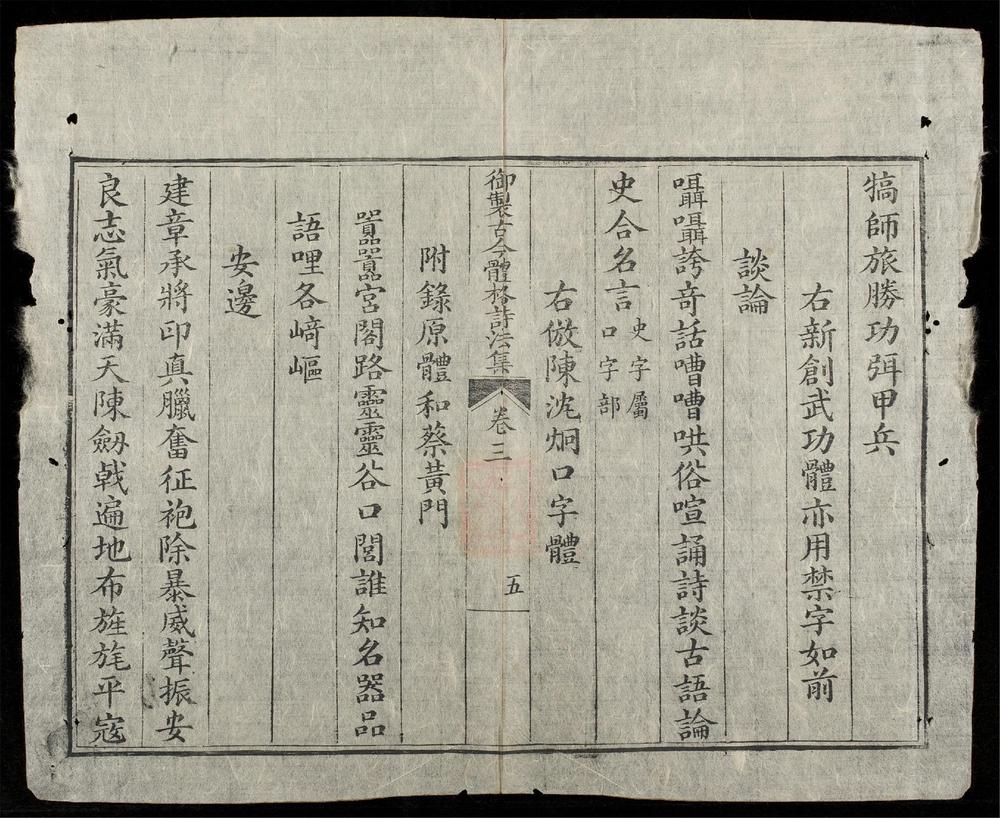 犒師旅勝功弭甲兵
右新創武功體亦用禁字如前
談論
囁囁誇奇話嘈嘈哄俗喧誦詩談古語論
史合名言史字屬
口字部
右倣陳沈炯口字體
御製古今體格詩法集 卷三 五
附錄原體和蔡黃門
囂囂宮閣路靈靈谷口閭誰知名器品
語哩各崎嶇
安邊
建章承將印真臘奮征袍除暴威聲振安
良志氣豪滿天陳劒戟遍地布旌旄平寇